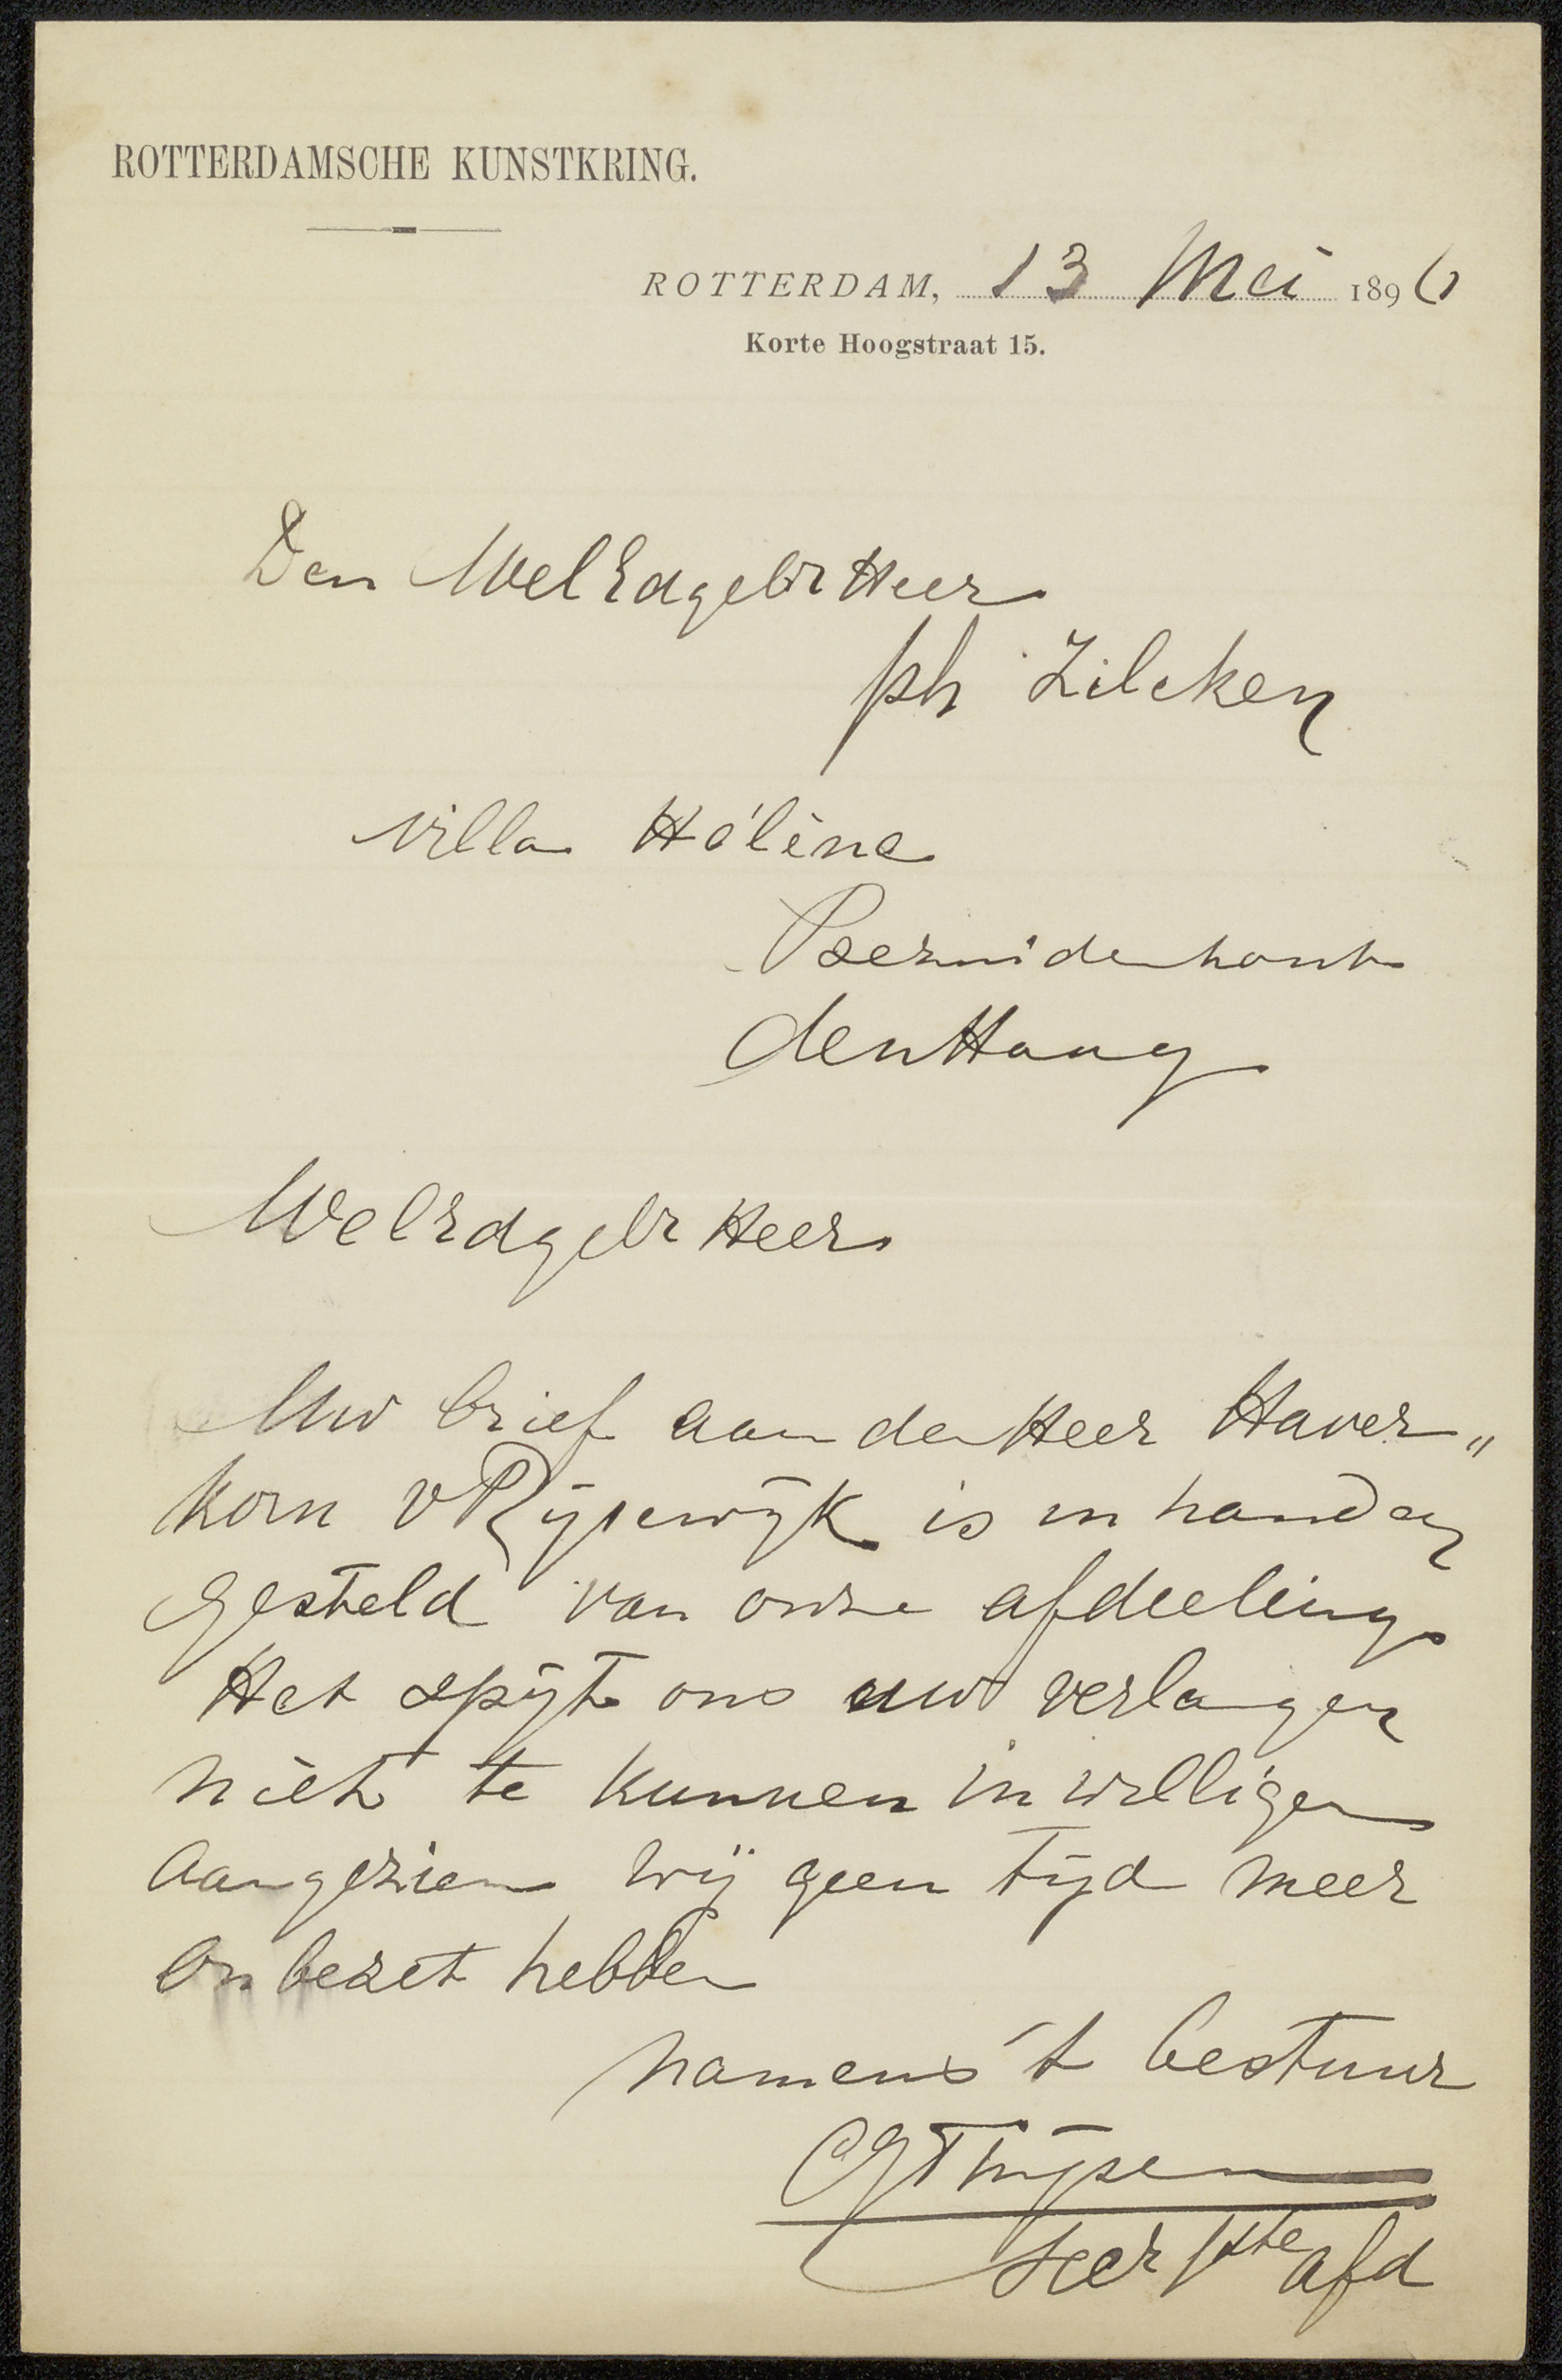 ROTTERDAMSCHE KUNSTKRING.
ROTTERDAM, 13 Mei 1896
Korte Hoogstraat 15.
Den WelEdgebr Heer
Ph Zilcken
Villa Hélène
Bezuidenhout
den Haag
WelEdgebr Heer
Uw brief aan den Heer Haver„
korn v Rijsewijk is in handen
gesteld van onze afdeeling.
Het spijt ons uw verlangen
niet te kunnen inwilligen
aangezien wij geen tijd meer
onbezet hebben
namens 't bestuur
CG Thijsen
Secr 1ste afd